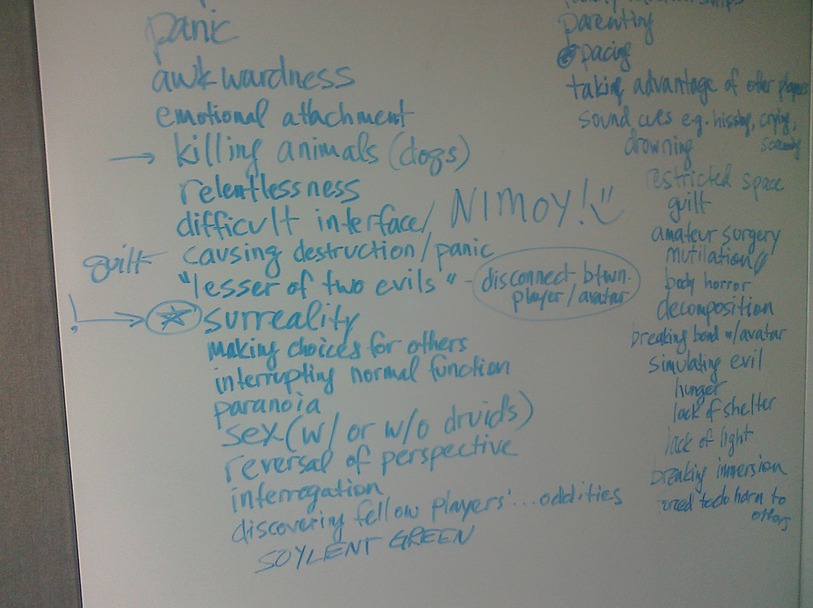 panic
awkwardness
emotional attachment
→ killing animals (dogs)
relentlessness
difficult interface/ NIMOY!
guilt causing destruction/panic
"lesser of two evils" - disconnect btwn.
player/avatar
! → ☆ surreality
making choices for others
interrupting normal function
paranoia
sex (w/ or w/o druids)
reversal of perspective
interrogation
discovering fellow players'...oddities
SOYLENT GREEN
parenting
pacing
taking advantage of other players
sound cues e.g. hissing, crying,
screaming
drowning
restricted space
guilt
amateur surgery
mutilation
body horror
decomposition
breaking bond w/avatar
simulating evil
hunger
lack of shelter
lack of light
breaking immersion
forced to do harm to
others